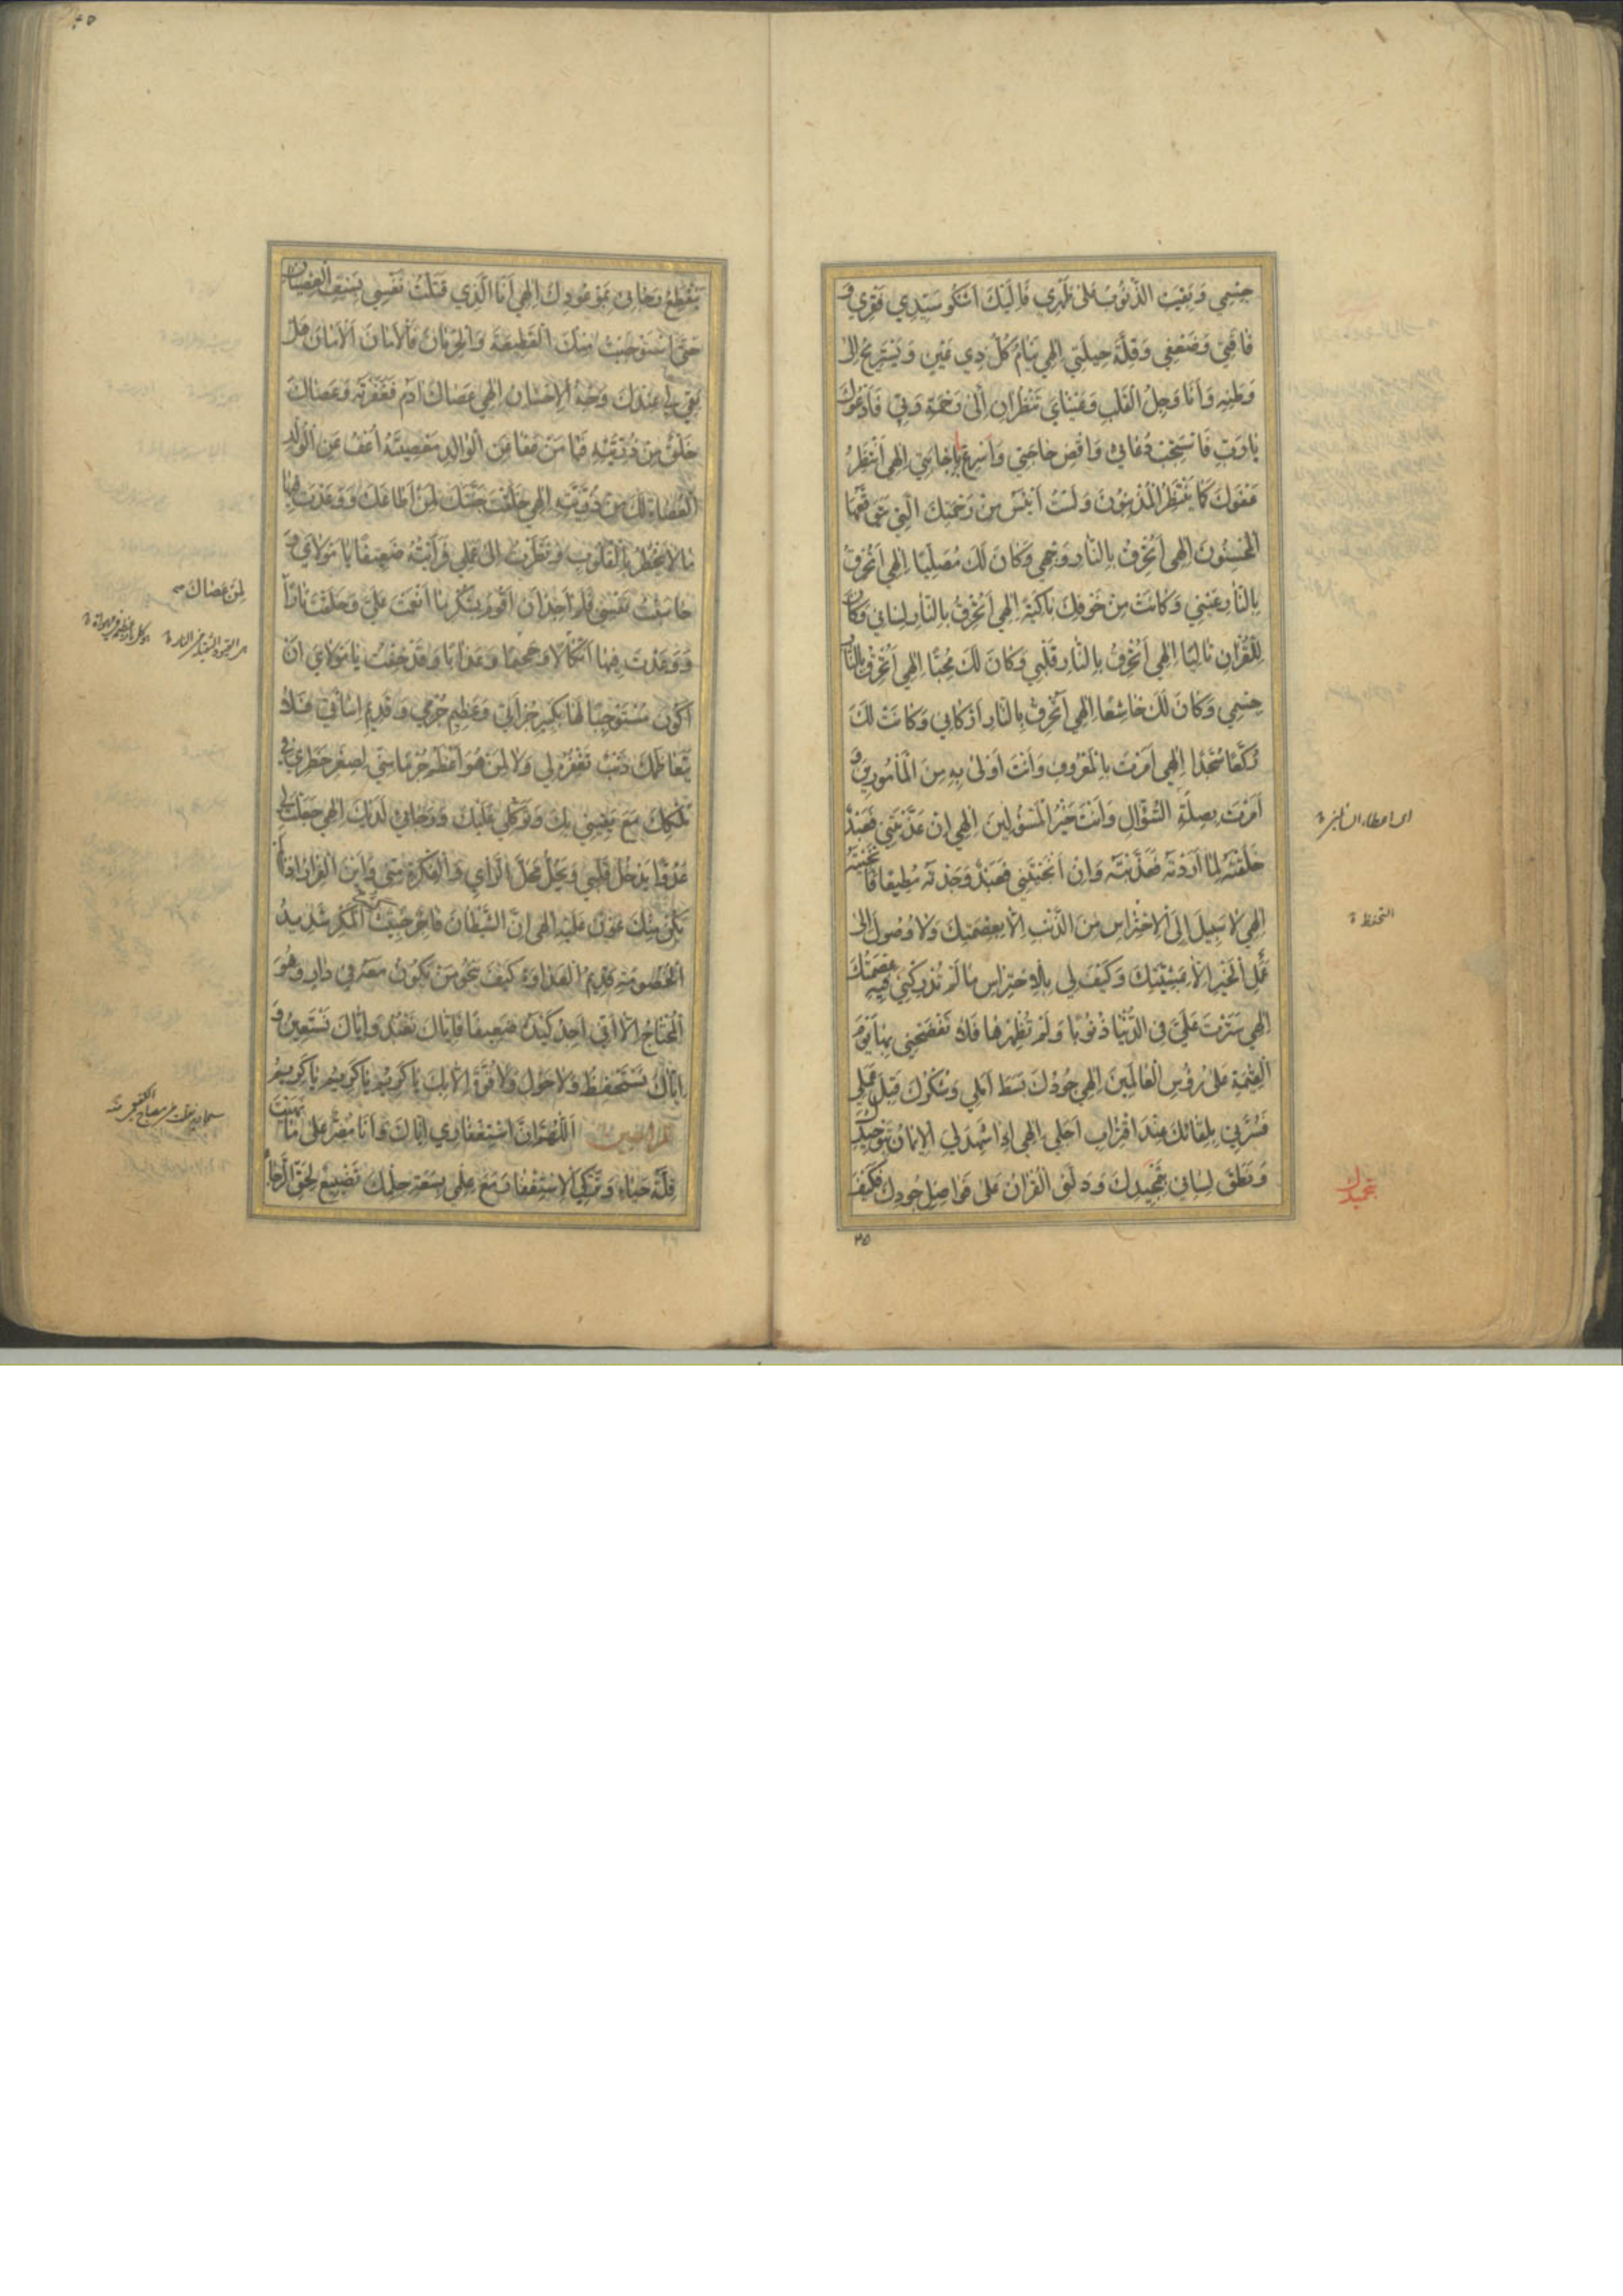 جِسْمِي وَبَقِيَتِ الذُّنُوبُ عَلىٰ ظَهْرِي فَاِلَيْكَ اَشْكُو سَيِّدِي فَقْرِي وَ
فٰاقَتِي وَضَعْفِي وَقِلَّةَ حِيلَتِي اِلٰهِي يَنٰامُ كُلُّ ذِي عَيْنٍ وَيَسْتَرِيحُ اِلىٰ
وَطَنِهِ وَاَنَا وَجِلُ الْقَلْبِ وَعَيْنٰايَ تَنْظُرٰانِ اِلىٰ رَحْمَةِ رَبِّي فَاَدْعُوكَ
يٰا رَبِّ فَاسْتَجِبْ دُعٰائِي وَاقْضِ حٰاجَتِي وَاَسْرِعْ بِاِجٰابَتِي اِلٰهِي اَنْتَظِرُ
عَفْوَكَ كَمٰا يَنْتَظِرُ الْمُذْنِبُونَ وَلَسْتُ اَيْئَسُ مِنْ رَحْمَتِكَ الَّتِي يَتَوَقَّعُهَا
الْمُحْسِنُونَ اِلٰهِي اَتُحْرِقُ بِالنّٰارِ وَجْهِي وَكٰانَ لَكَ مُصَلِّيًا اِلٰهِي اَتُحْرِقُ
بِالنّٰارِ عَيْنِي وَكٰانَتْ مِنْ خَوْفِكَ بٰاكِيَةً اِلٰهِي اَتُحْرِقُ بِالنّٰارِ لِسٰانِي وَكٰانَ
لِلْقُرْاٰنِ تٰالِيًا اِلٰهِي اَتُحْرِقُ بِالنّٰارِ قَلْبِي وَكٰانَ لَكَ مُحِبًّا اِلٰهِي اَتُحْرِقُ بِالنّٰارِ
جِسْمِي وَكٰانَ لَكَ خٰاشِعًا اِلٰهِي اَتُحْرِقُ بِالنّٰارِ اَرْكٰانِي وَكٰانَتْ لَكَ
رُكَّعًا سُجَّدًا اِلٰهِي اَمَرْتَ بِالْمَعْرُوفِ وَاَنْتَ اَوْلىٰ بِهِ مِنَ الْمَأْمُورِينَ وَ
اَمَرْتَ بِصِلَةِ السُّؤّٰالِ وَاَنْتَ خَيْرُ الْمَسْؤُلِينَ اِلٰهِي اِنْ عَذَّبْتَنِي فَعَبْدٌ
خَلَقْتَهُ لِمٰا اَرَدْتَهُ فَعَذَّبْتَهُ وَاِنْ اَنْجَيْتَنِي فَعَبْدٌ وَجَدْتَهُ مُطِيعًا فَاَنْجَيْتَهُ
اِلٰهِي لٰا سَبِيلَ اِلَى الْاِحْتِرٰاسِ مِنَ الذَّنْبِ اِلّٰا بِعِصْمَتِكَ وَلٰا وُصُولَ اِلىٰ
عَمَلِ الْخَيْرِ اِلّٰا بِمَشِيَّتِكَ وَكَيْفَ لِي بِالْاِحْتِرٰاسِ مٰا لَمْ تُدْرِكْنِي فِيهِ عِصْمَتُكَ
اِلٰهِي سَتَرْتَ عَلَيَّ فِي الدُّنْيٰا ذُنُوبًا وَلَمْ تُظْهِرْهٰا فَلٰا تَفْضَحْنِي بِهٰا يَوْمَ
الْقِيٰمَةِ عَلىٰ رُؤُسِ الْعٰالَمِينَ اِلٰهِي جُودُكَ بَسَطَ اَمَلِي وَشُكْرُكَ قَبِلَ عَمَلِي
فَسُرَّنِي بِلِقٰائِكَ عِنْدَ اقْتِرٰابِ اَجَلِي اِلٰهِي اِذٰا شَهِدَ لِيَ الْاِيمٰانُ بِتَوْحِيدِكَ
وَنَطَقَ لِسٰانِي بِتَمْجِيدِكَ وَدَلَّنِي الْقُرْاٰنُ عَلىٰ فَوٰاضِلِ جُودِكَ فَكَيْفَ
التحفظ
٣٥
يَنْقَطِعُ رَجٰائِي بِمَوْعُودِكَ اِلٰهِي اَنَا الَّذِي قَتَلْتُ نَفْسِي بِسَيْفِ الْعِصْيٰانِ
حَتَّى اسْتَوْجَبْتُ مِنْكَ الْقَطِيعَةَ وَالْحِرْمٰانَ فَالْاَمٰانَ الْاَمٰانَ هَلْ
بَقِيَ لِي عِنْدَكَ وَجْهُ الْاِحْسٰانِ اِلٰهِي عَصٰاكَ اٰدَمُ فَغَفَرْتَهُ وَعَصٰاكَ
خَلْقٌ مِنْ ذُرِّيَّتِهِ فَيٰا مَنْ عَفٰا عَنِ الْوٰالِدِ مَعْصِيَتَهُ اُعْفُ عَنِ الْوُلْدِ
الْعُصٰاةِ لَكَ مِنْ ذُرِّيَّتِهِ اِلٰهِي خَلَقْتَ جَنَّتَكَ لِمَنْ اَطٰاعَكَ وَوَعَدْتَ فِيهٰا
مٰا لٰا يَخْطُرُ بِالْقُلُوبِ وَنَظَرْتُ اِلىٰ عَمَلِي فَرَاَيْتُهُ ضَعِيفًا يٰا مَوْلٰايَ وَ
حٰاسَبْتُ نَفْسِي فَلَمْ اَجِدْ اَنْ اَقُومَ بِشُكْرِ مٰا اَنْعَمْتَ عَلَيَّ وَخَلَقْتَ نٰارًا
وَوَعَدْتَ فِيهٰا اَنْكٰالًا وَجَحِيمًا وَعَذٰابًا وَقَدْ خِفْتُ يٰا مَوْلٰايَ اَنْ
اَكُونَ مُسْتَوْجِبًا لَهٰا بِكَبِيرِ جُرْأَتِي وَعَظِيمِ جُرْمِي وَقَدِيمِ اِسٰائَتِي فَلٰا
يَتَعٰاظَمُكَ ذَنْبٌ تَغْفِرُهُ لِي وَلٰا لِمَنْ هُوَ اَعْظَمُ جُرْمًا مِنِّي لِصِغَرِ خَطَرِي فِي
مُلْكِكَ مَعَ يَقِينِي بِكَ وَتَوَكُّلِي عَلَيْكَ وَرَجٰائِي لَدَيْكَ اِلٰهِي جَعَلْتَ لِي
عَدُوًّا يَدْخُلُ قَلْبِي وَيَحُلُّ مَحَلَّ الرَّأْيِ وَالْفِكْرَةِ مِنِّي وَاَيْنَ الْفِرٰارُ اِذٰا لَمْ
يَكُنْ مِنْكَ عَوْنٌ عَلَيْهِ اِلٰهِي اِنَّ الشَّيْطٰانَ فٰاجِرٌ خَبِيثٌ كَثِيرُ الْمَكْرِ شَدِيدُ
الْخُصُومَةِ قَدِيمُ الْعَدٰاوَةِ كَيْفَ يَنْجُو مَنْ يَكُونُ مَعَهُ فِي دٰارٍ وَهُوَ
الْمُحْتٰالُ اِلّٰا اَنِّي اَجِدُ كَيْدَهُ ضَعِيفًا فَاِيّٰاكَ نَعْبُدُ وَاِيّٰاكَ نَسْتَعِينُ وَ
اِيّٰاكَ نَسْتَحْفِظُ وَلٰا حَوْلَ وَلٰا قُوَّةَ اِلّٰا بِكَ يٰا كَرِيمُ يٰا كَرِيمُ يٰا كَرِيمُ
اَللّٰهُمَّ اِنَّ اسْتِغْفٰارِي اِيّٰاكَ وَاَنَا مُصِرٌّ عَلىٰ مٰا نَهَيْتَ
قِلَّةُ حَيٰاءٍ وَتَرْكِيَ الْاِسْتِغْفٰارَ مَعَ عِلْمِي بِسَعَةِ حِلْمِكَ تَضْيِيعٌ لِحَقِّ الرَّجٰاءِ
لِمَنْ عَصٰاكَ